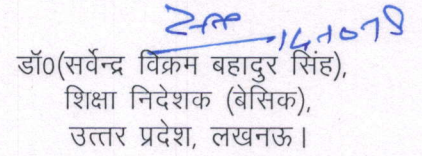 डॉ0(सर्वेन्द्र विक्रम बहादुर सिंह),
शिक्षा निदेशक (बेसिक),
उत्तर प्रदेश, लखनऊ।